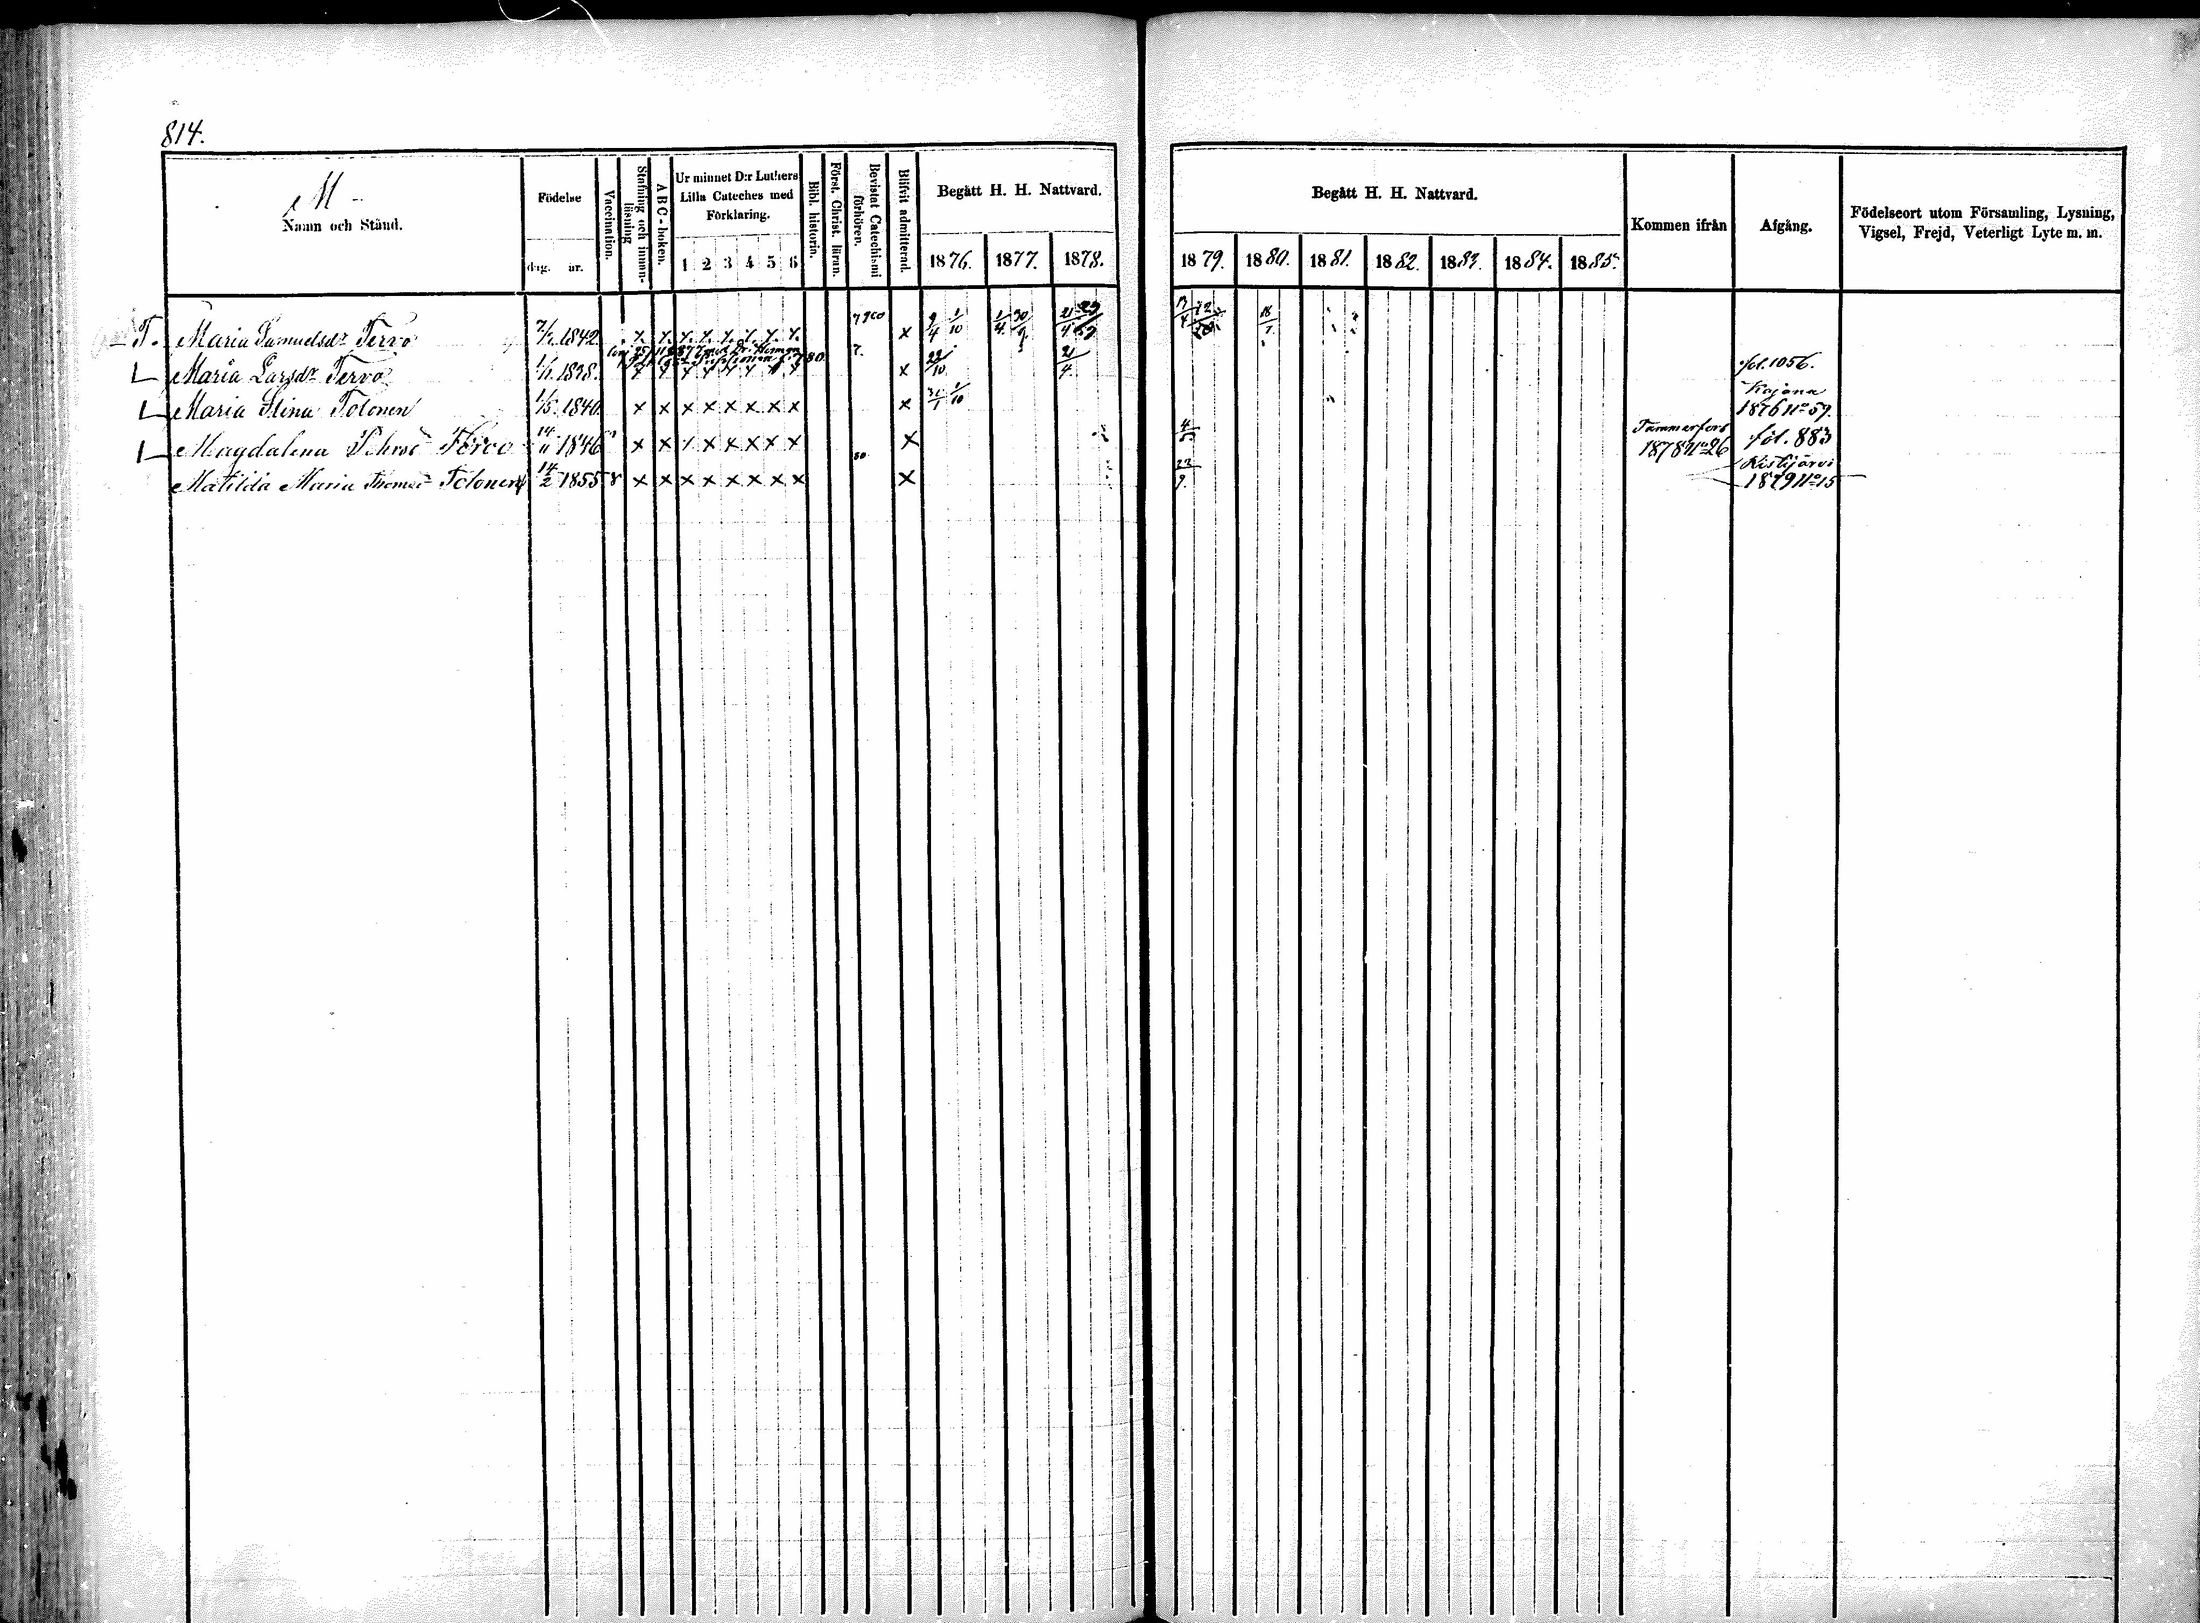 814.
M
Namn och Stånd.
Födelse
dag. år.
Vaccination.
Stafning och innan-
läsning
ABC-boken.
Ur minnet D:r Luthers
Lilla Cateches med
Förklaring.
1 2 3 4 5 6
Bibl. historia.
Först. Christ. läran.
Bevistat Catechismi
förhören.
Blifvit admitterad.
Begått H. H. Nattvard.
1876. 1877. 1878.
Begått H. H. Nattvard.
1879. 1880. 1881. 1882. 1883. 1884. 1885.
Kommen ifrån
Afgång.
Födelseort utom Församling, Lysning,
Vigsel, Frejd, Veterligt Lyte m. m.
T. Maria Samuelsdr Tervo 1842. x x x x x x x x x 9/4 1/10 1/4 30/9 18/7
L Maria Larsdr Tervo 1838. x x x x x x x x x 22/10 21/4 fol. 1056.
L Maria Stina Tolonen 1/5 1840 x x x x x x x x x Kajana
1876 No 59.
L Magdalena Tervo 14/11 1846 x x x x x x x x x Tammerfors
1878 No 26 fol. 883
Matilda Maria Thomae Tolonen 14/2 1855 x x x x x x x x x 1879 No 15